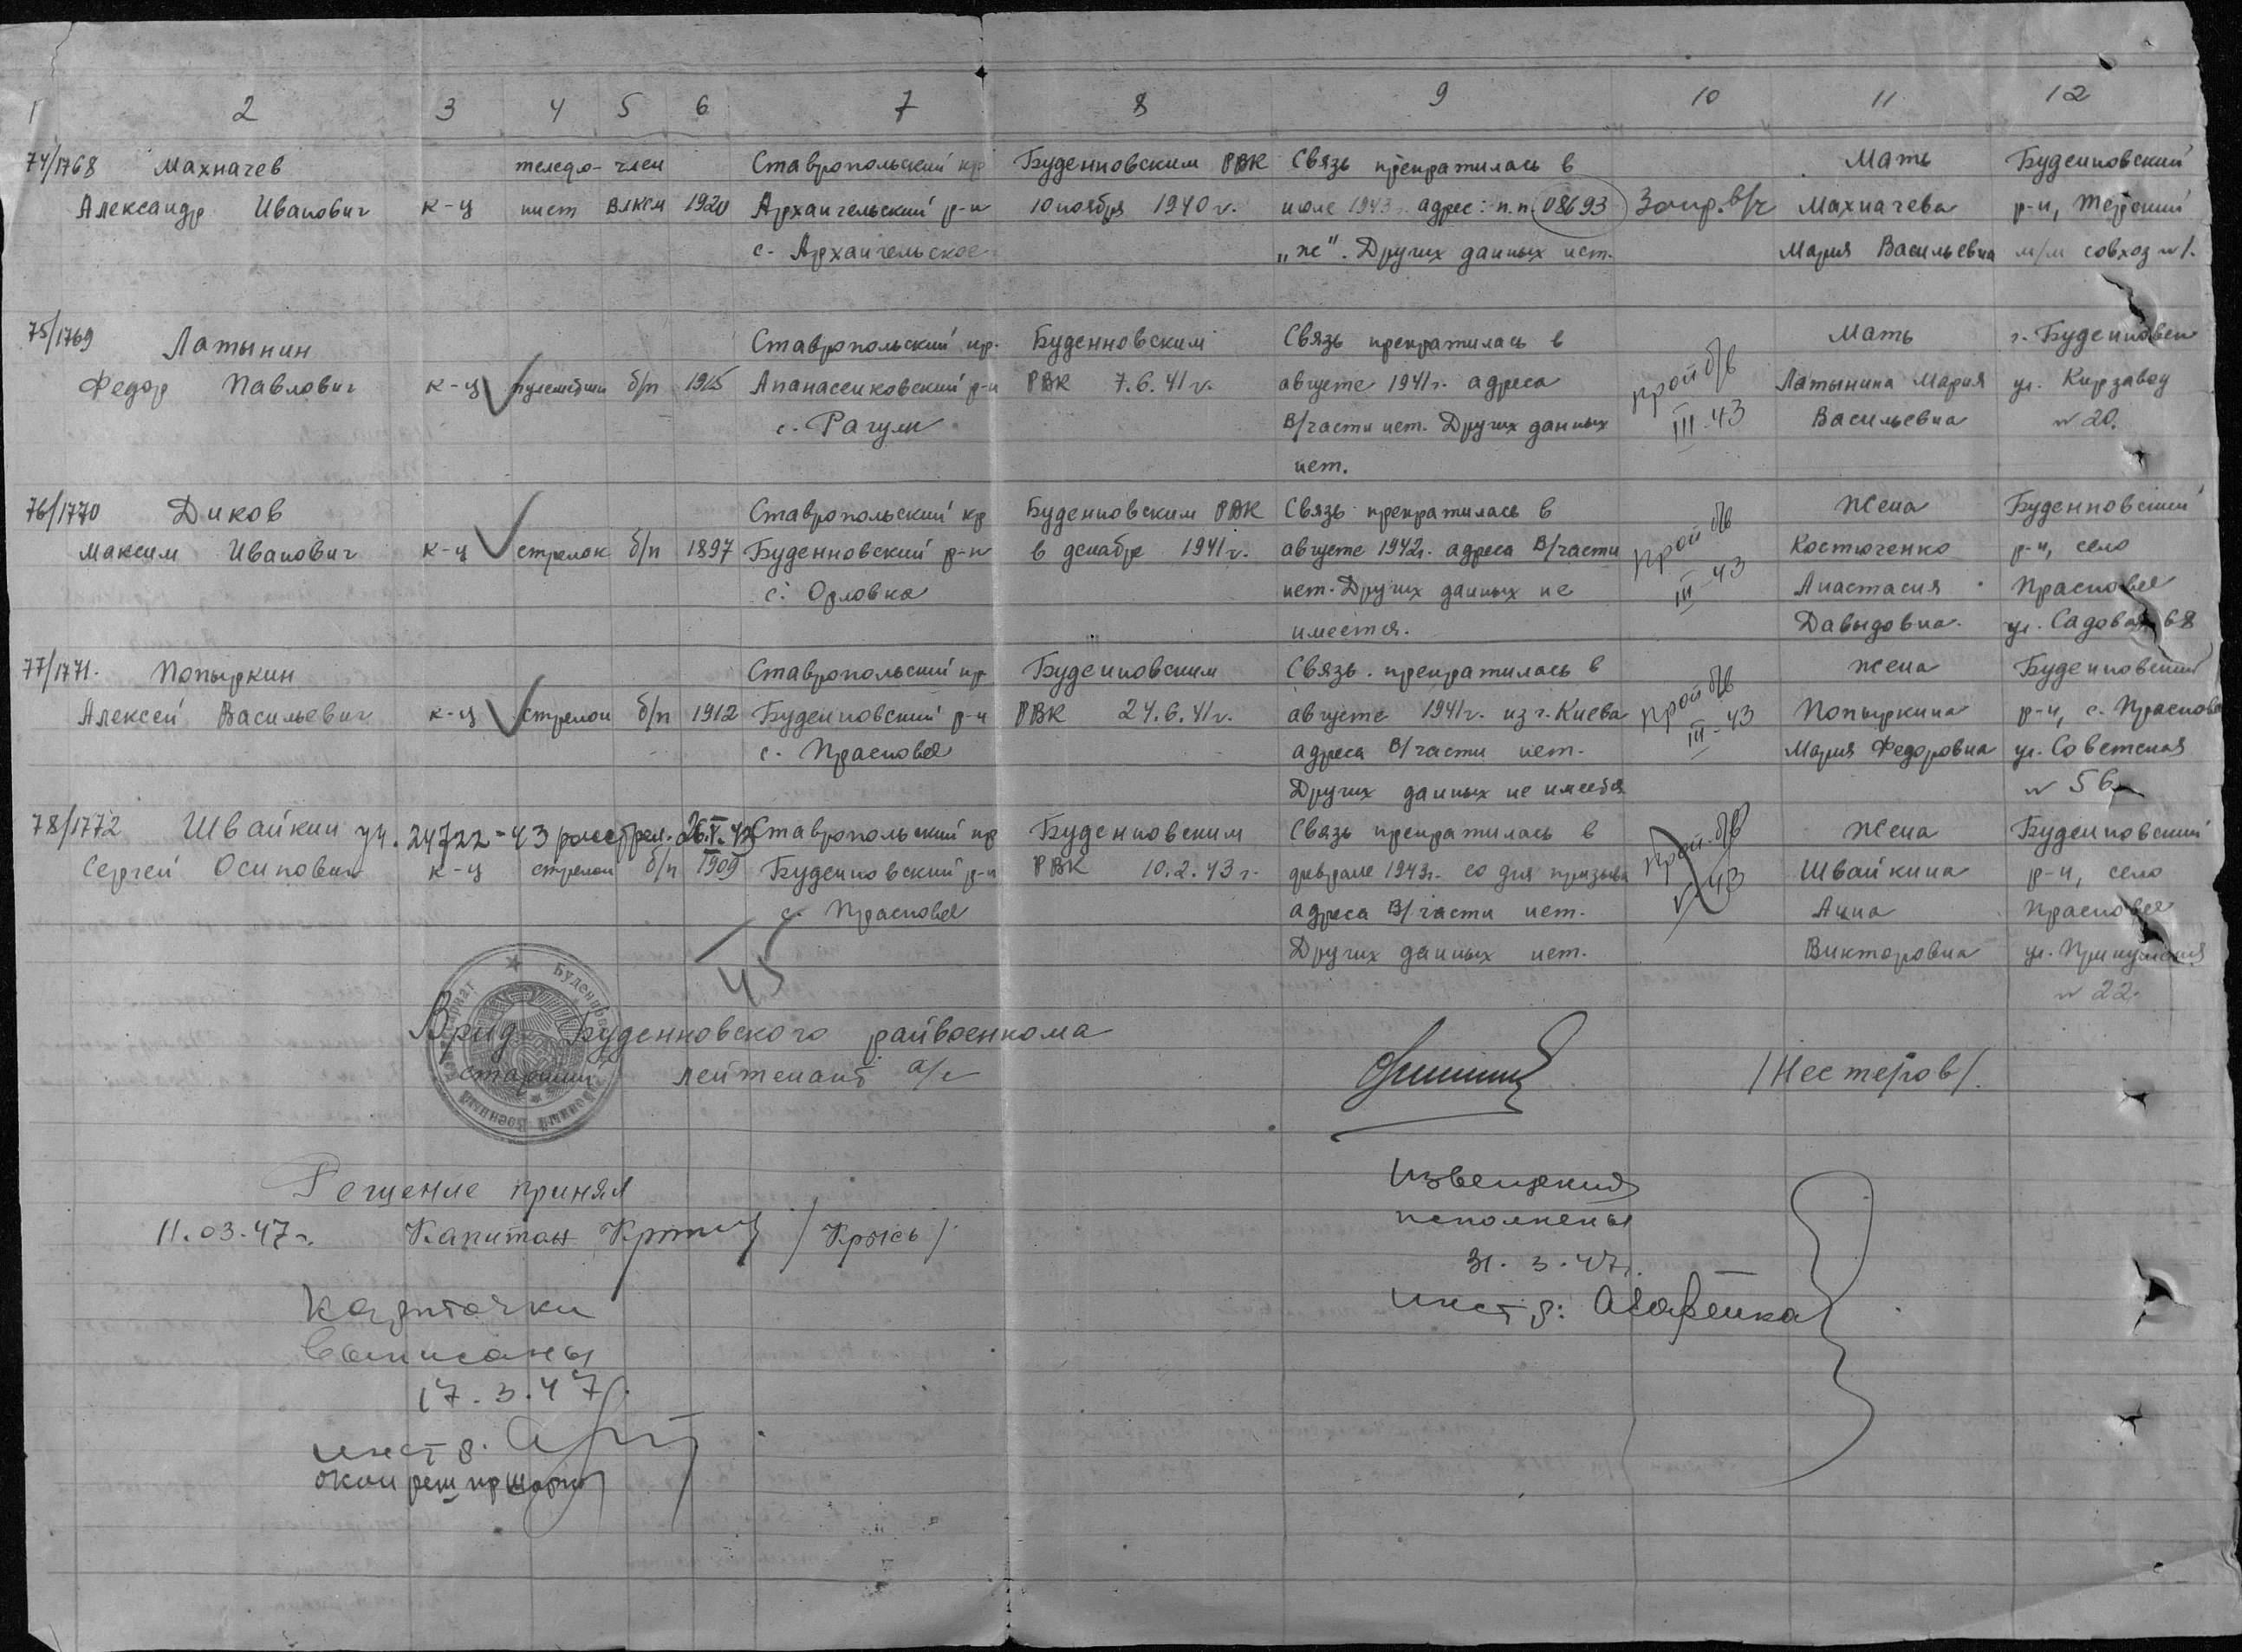 1 2 3 4 5 6 7 8 9 10 11 12
74/1768 Махначев телефо- член Ставропольский кр Буденновским РВК Связь прекратилась в Мать Буденновский
Александр Иванович к-ц нист ВЛКСМ 1920 Архангельский р-н 10 ноября 1940 г. июле 1943 г. адрес: п.п. 08693 Запр. в/ч Махначева р-н, Терский
с. Архангельское „ж". Других данных нет. Мария Васильевна м/м совхоз №1.
75/1769 Латынин Ставропольский кр. Буденновским Связь прекратилась в Мать г. Буденновск
Федор Павлович к-ц пулеметчик б/п 1915 Апанасенковский р-н РВК 7.6.41 г. августе 1941 г. адреса проп б/в Латынина Мария ул. Кирзавод
с. Рагули В/части нет. Других данных III-43 Васильевна №20.
нет.
76/1770 Диков Ставропольский кр Буденновским РВК Связь прекратилась в Жена Буденновский
Максим Иванович к-ц стрелок б/п 1897 Буденновский р-н в декабре 1941 г. августе 1942 г. адреса В/части проп б/в Костюченко р-н, село
с. Орловка нет. Других данных не III-43 Анастасия Прасковея
имеется. Давыдовна. ул. Садовая 68
77/1771. Попыркин Ставропольский кр Буденновским Связь прекратилась в жена Буденновский
Алексей Васильевич к-ц стрелок б/п 1912 Буденновский р-н РВК 24.6.41 г. августе 1941 г. из г. Киева проп б/в Попыркина р-н, с. Прасковея
с. Прасковея адреса В/части нет. III-43 Мария Федоровна ул. Советская
Других данных не имеется № 56
78/1772 Швайкин уч. 24722-43 расстрел. 26.V.43 Ставропольский кр Буденновским Связь прекратилась в проп. б/в Жена Буденновский
Сергей Осипович к-ц стрелок б/п 1909 Буденновский р-н РВК 10.2.43 г. феврале 1943 г. со дня призыва V-43 Швайкина р-н, село
с. Прасковея адреса В/части нет. Анна Прасковея
Других данных нет. Викторовна ул. Прикумская
45 № 22.
Врид Буденновского райвоенкома
старший лейтенант а/с /Нестеров/.
Решение принял
11.03.47 г. Капитан /Крысь/
Извещения
исполнены
31.3.47 г.
инстр:
Карточки
выписаны
17.3.47 г.
инстр.